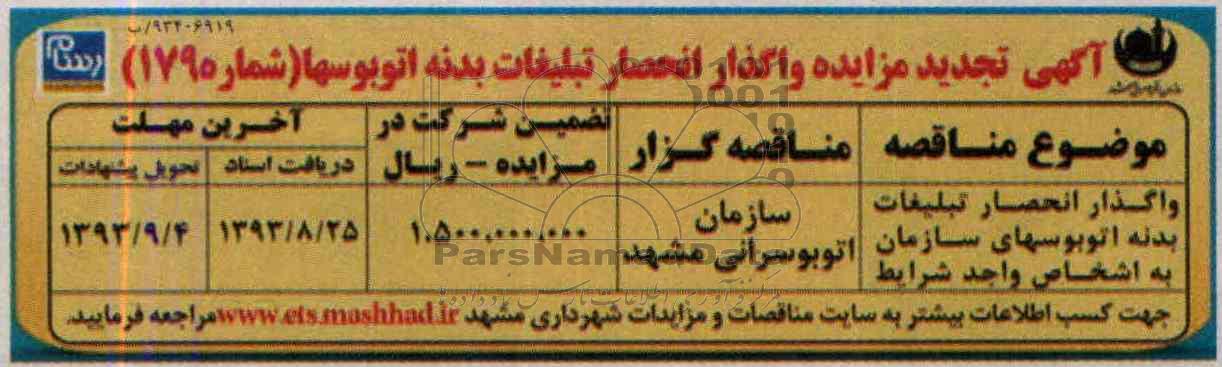 ۹۳۴۰۶۹۱۹/ب
آگهی تجدید مزایده واگذار انحصار تبلیغات بدنه اتوبوسها(شماره ۱۷۹۵)
رسام
موضوع مناقصه
مناقصه گزار
تضمین شرکت در
مزایده – ریال
آخرین مهلت
دریافت اسناد
تحویل پیشنهادات
واگذار انحصار تبلیغات
بدنه اتوبوسهای سازمان
به اشخاص واجد شرایط
سازمان
اتوبوسرانی مشهد
۱.۵۰۰.۰۰۰.۰۰۰
۱۳۹۳/۸/۲۵
۱۳۹۳/۹/۴
ParsNamadData
جهت کسب اطلاعات بیشتر به سایت مناقصات و مزایدات شهرداری مشهد www.ets.mashhad.ir مراجعه فرمایید.